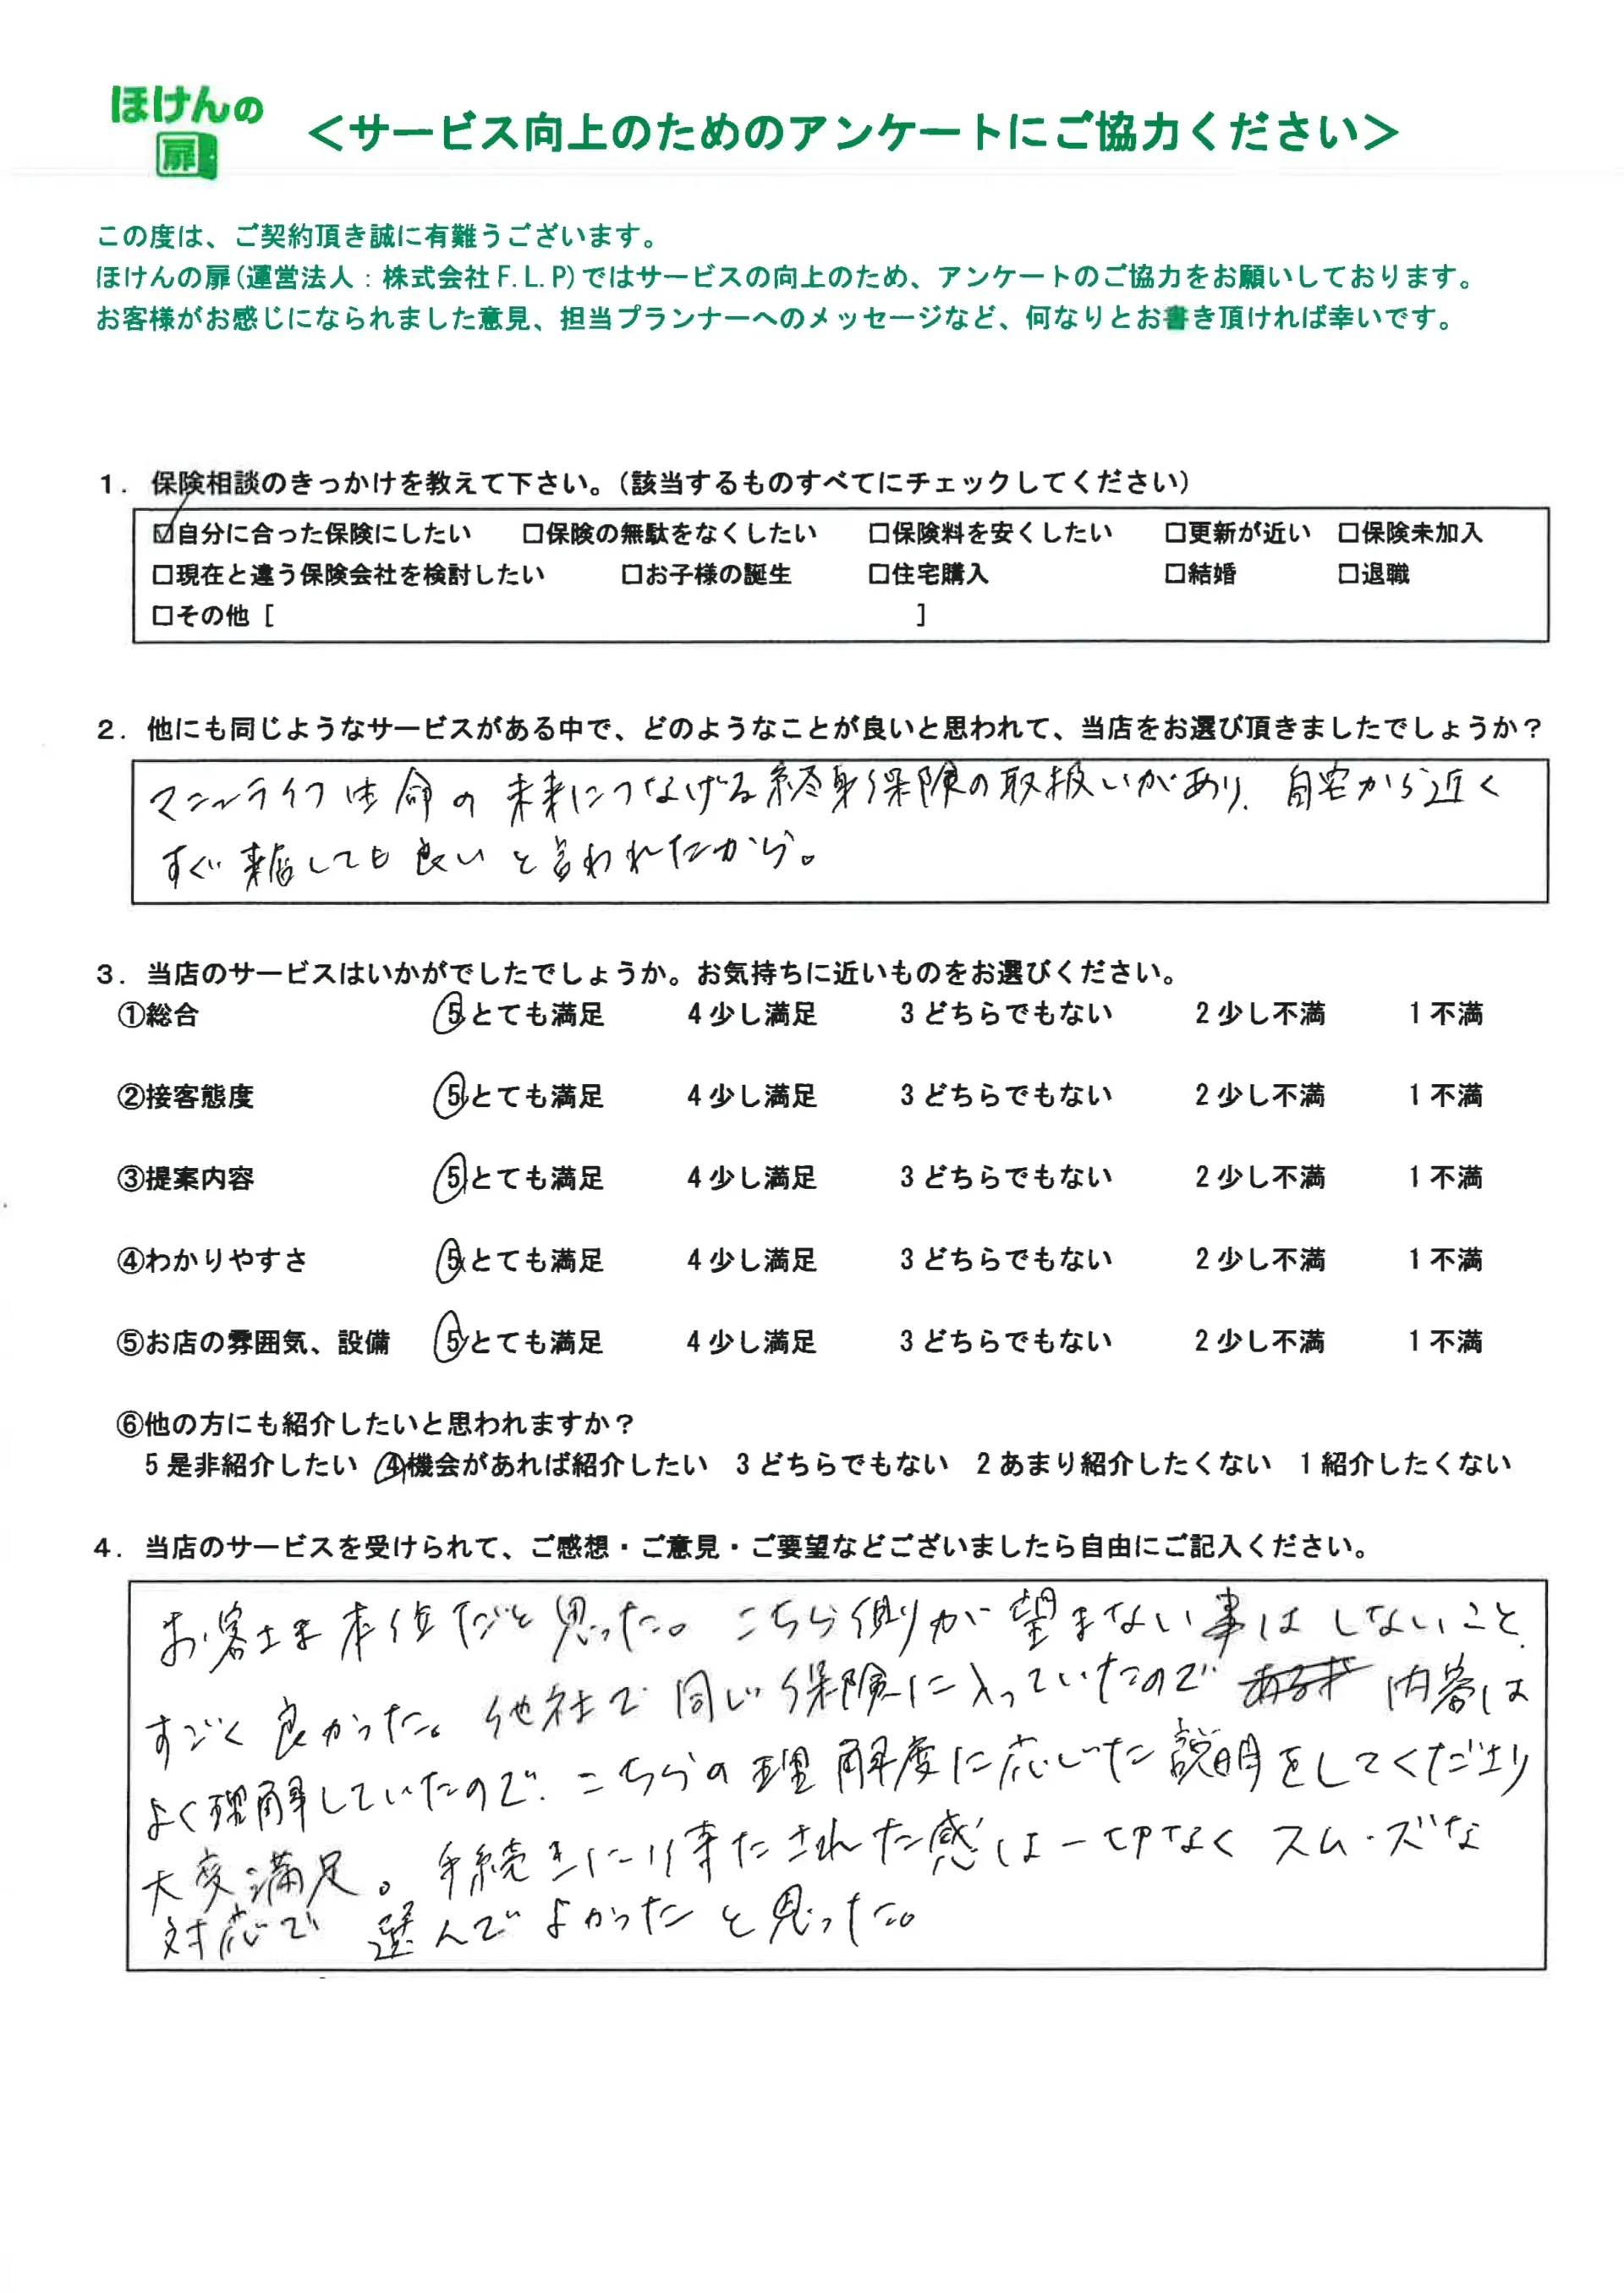 ほけんの
扉
＜サービス向上のためのアンケートにご協力ください＞
この度は、ご契約頂き誠に有難うございます。
ほけんの扉(運営法人：株式会社F.L.P)ではサービスの向上のため、アンケートのご協力をお願いしております。
お客様がお感じになられました意見、担当プランナーへのメッセージなど、何なりとお書き頂ければ幸いです。
1. 保険相談のきっかけを教えて下さい。（該当するものすべてにチェックしてください）
☑自分に合った保険にしたい □保険の無駄をなくしたい □保険料を安くしたい □更新が近い □保険未加入
□現在と違う保険会社を検討したい □お子様の誕生 □住宅購入 □結婚 □退職
□その他 [ ]
2. 他にも同じようなサービスがある中で、どのようなことが良いと思われて、当店をお選び頂きましたでしょうか？
マニュライフ生命の未来につなげる終身保険の取扱いがあり、自宅から近く
すぐ来店しても良いと言われたから。
3. 当店のサービスはいかがでしたでしょうか。お気持ちに近いものをお選びください。
①総合 5とても満足 4少し満足 3どちらでもない 2少し不満 1不満
②接客態度 5とても満足 4少し満足 3どちらでもない 2少し不満 1不満
③提案内容 5とても満足 4少し満足 3どちらでもない 2少し不満 1不満
④わかりやすさ 5とても満足 4少し満足 3どちらでもない 2少し不満 1不満
⑤お店の雰囲気、設備 5とても満足 4少し満足 3どちらでもない 2少し不満 1不満
⑥他の方にも紹介したいと思われますか？
5是非紹介したい 4機会があれば紹介したい 3どちらでもない 2あまり紹介したくない 1紹介したくない
4. 当店のサービスを受けられて、ご感想・ご意見・ご要望などございましたら自由にご記入ください。
お客さま本位だと思った。こちら側が望まない事はしないこと、
すごく良かった。他社で同じ保険に入っていたので 内容は
よく理解していたので、こちらの理解度に応じた説明をしてくださり
大変満足。手続きに待たされた感は一切なくスムーズな
対応で 選んでよかったと思った。